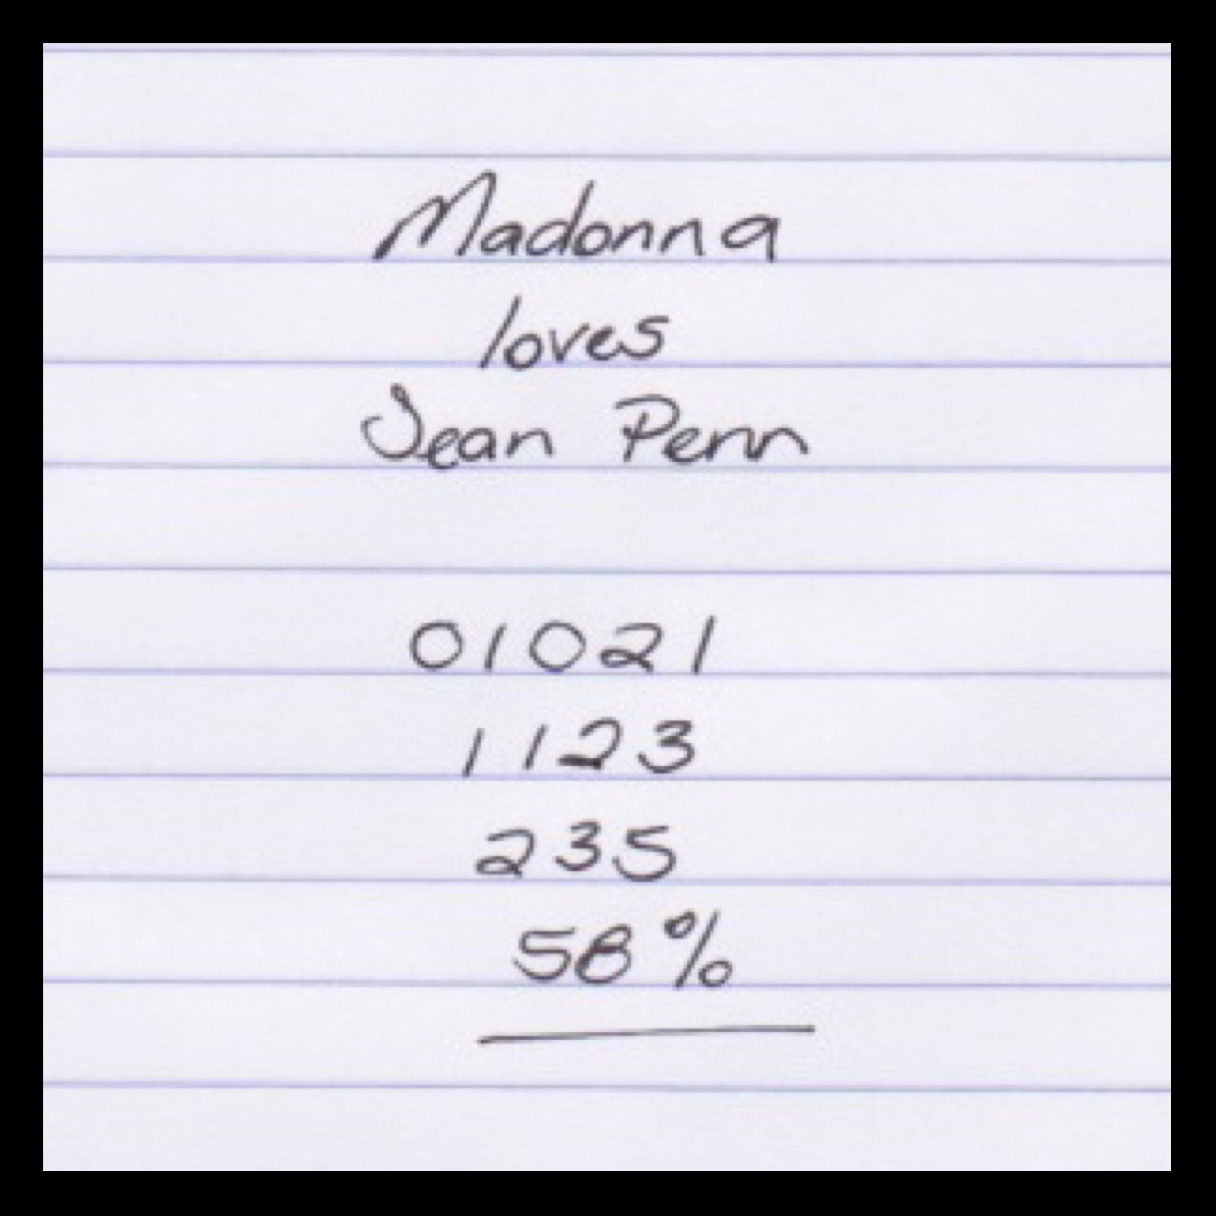 Madonna
loves
Sean Penn
01021
1123
235
58%